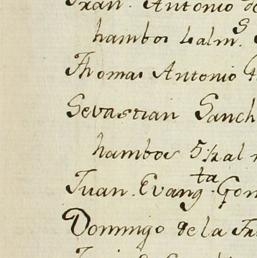 Fran. Antonio de
hambos 4 alm.s
Thomas Antonio
Sevastian Sanch
hambos 5½ al
Juan. Evang.ta Gom
Domingo de la Fr